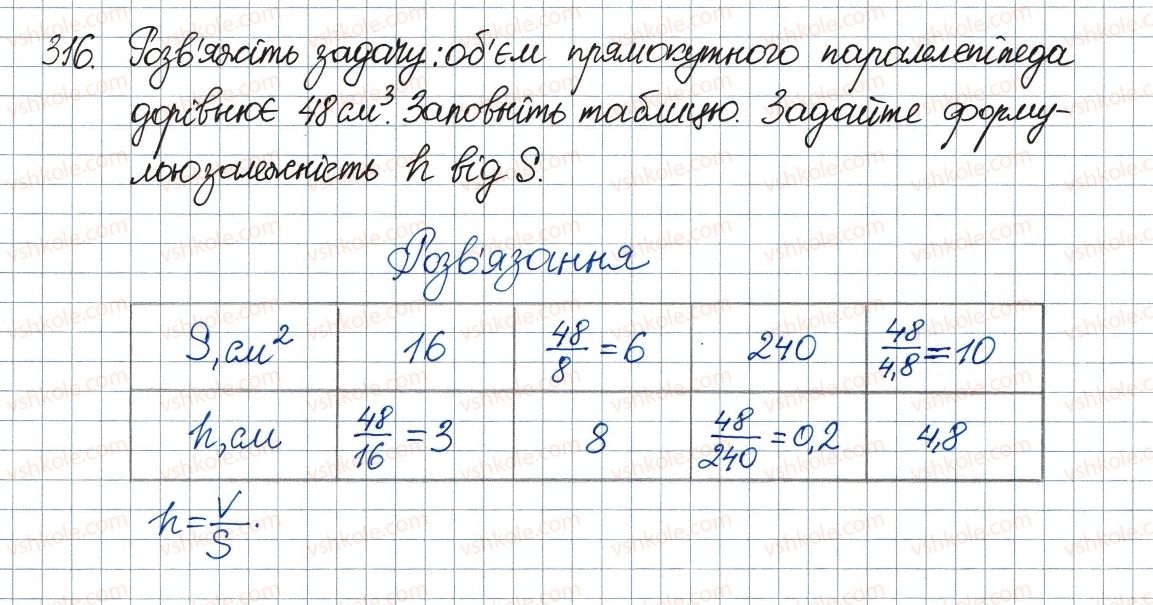 316. Розв'яжіть задачу: об'єм прямокутного паралелепіпеда
дорівнює 48 см³. Заповніть таблицю. Задайте форму-
лою залежність h від S.
Розв'язання
S, см² 16 48/8 = 6 240 48/4,8 = 10
h, см 48/16 = 3 8 48/240 = 0,2 4,8
h = V/S.